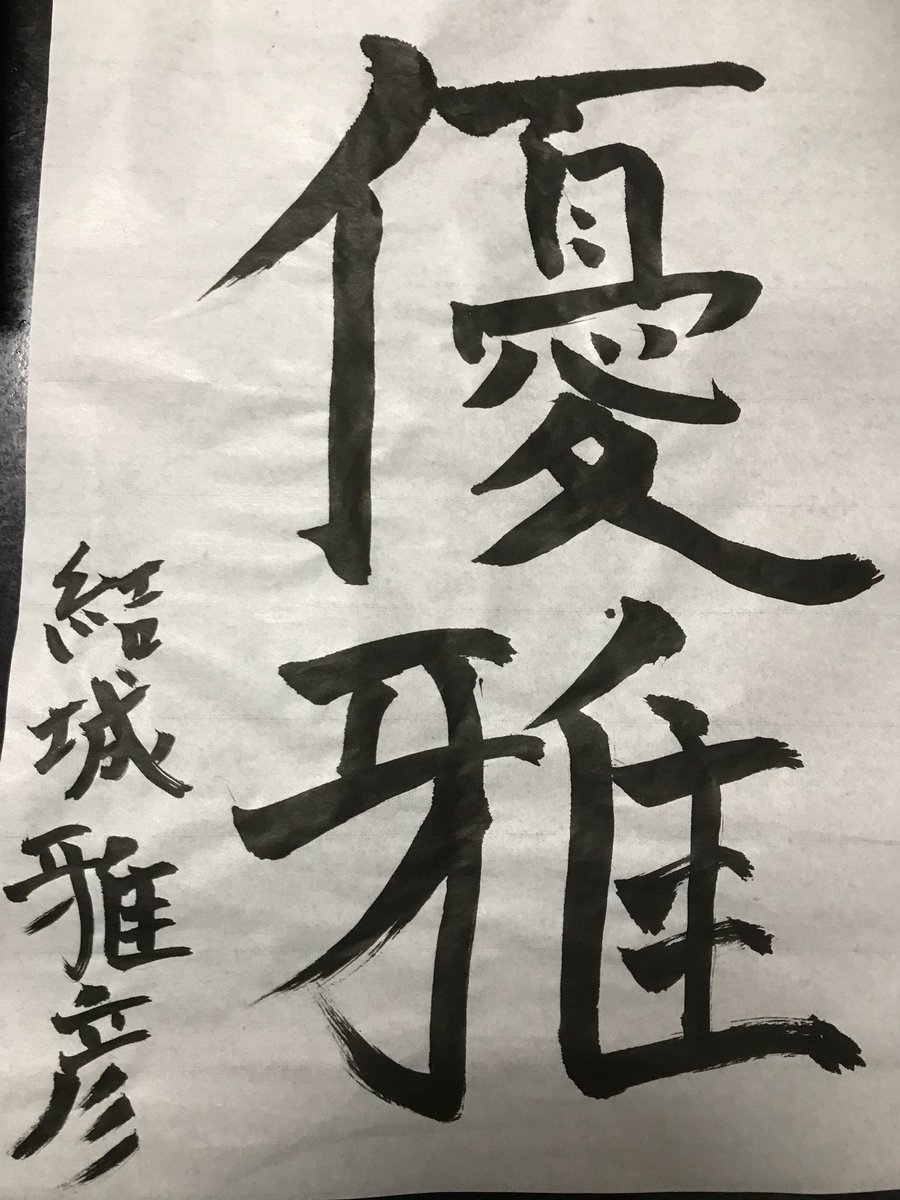 優雅
結城雅彦